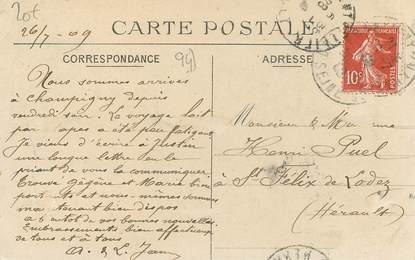 26/7-09
94
CARTE POSTALE
CORRESPONDANCE
ADRESSE
Nous sommes arrivés
à Champigny depuis
vendredi soir. Le voyage fait
par a été peu fatigant
Je viens d'écrire à Justin
une longue lettre en le
priant de vous la communiquer
Trouvé Gégène et Marie bien
port ts et nous-mêmes sommes
maintenant bien dispos
à tot de vos bonnes nouvelles
Embrassements bien affectueux
de tous et à tous
A. & L. Jam
Monsieur & Mme
Henri Puel
à St Félix de Lodez
(Hérault)
REPUBLIQUE FRANÇAISE
POSTES
10c